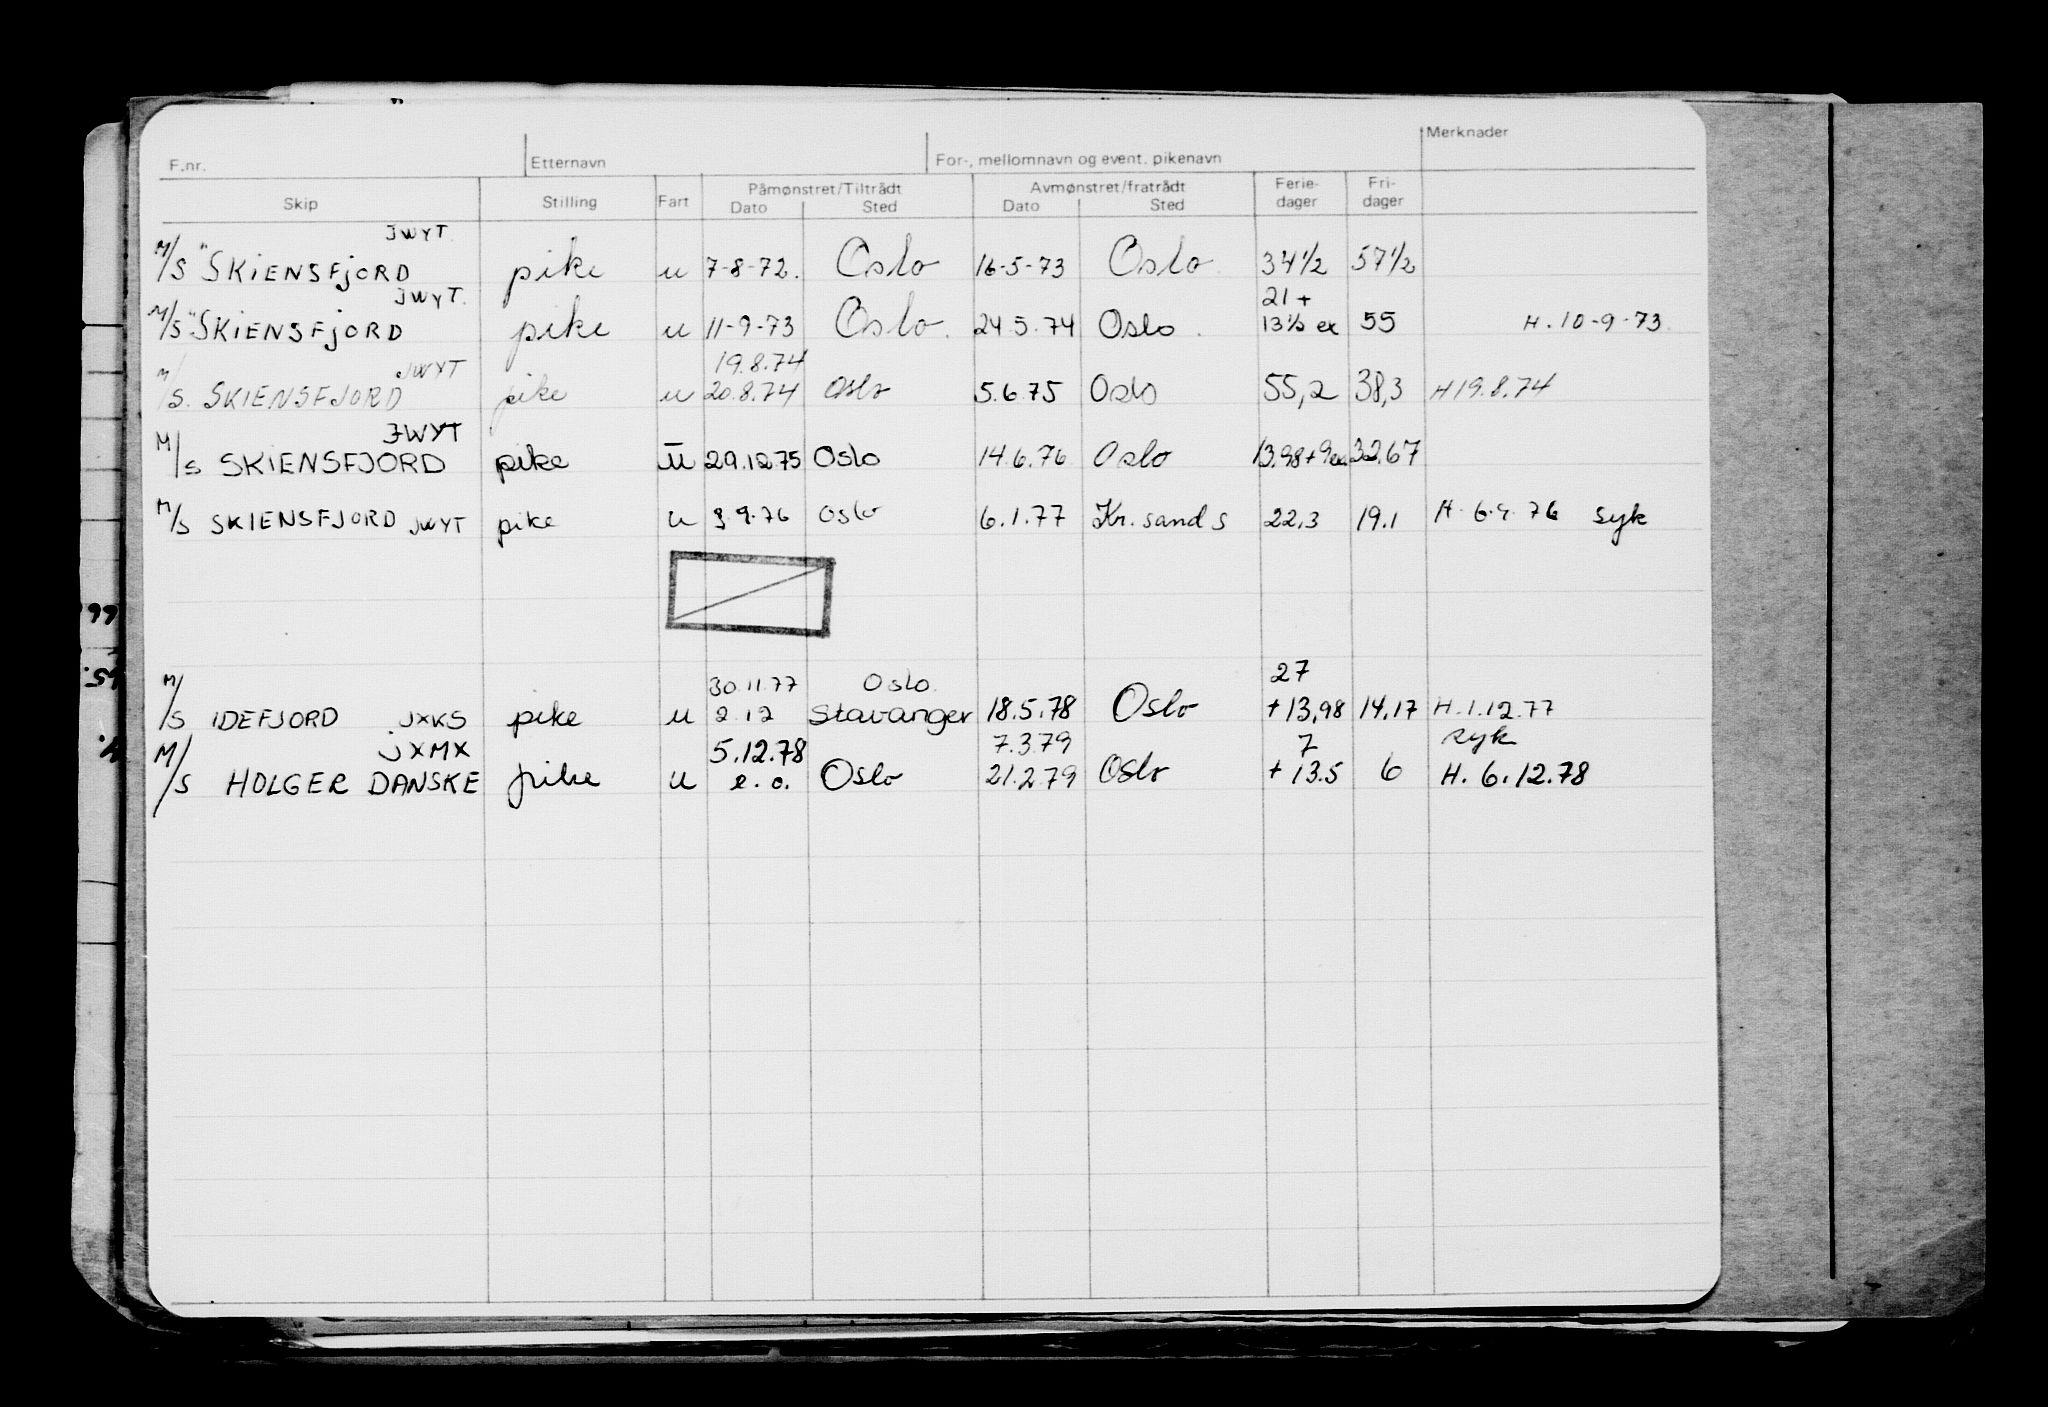 F.nr. Etternavn For-, mellomnavn og event. pikenavn Merknader
Skip Stilling Fart Påmønstret/Tiltrådt Avmønstret/fratrådt Ferie- Fri-
Dato Sted Dato Sted dager dager
JWYT.
M/S "SKIENSFJORD pike u 7-8-72. Oslo 16-5-73 Oslo 34 1/2 57 1/2
JWYT. 21 +
M/S "SKIENSFJORD pike u 11-9-73 Oslo. 24.5.74 Oslo. 13 1/2 ex 55 H. 10-9-73
JWYT 19.8.74
M/S. SKIENSFJORD pike u 20.8.74 Oslo 5.6.75 Oslo 55,2 38,3 H 19.8.74
JWYT
M/S SKIENSFJORD pike u 29.12.75 Oslo 14.6.76 Oslo 13.98+9ex 32.67
M/S SKIENSFJORD JWYT pike u 9.76 Oslo 6.1.77 Kr.sand S 22,3 19.1 H. 6.9.76 syk
30.11.77 Oslo 27
M/S IDEFJORD JXKS pike u 2.12 Stavanger 18.5.78 Oslo +13,98 14,17 H.1.12.77
JXMX 5.12.78 7.3.79 7 syk
M/S HOLGER DANSKE pike u e.o. Oslo 21.2.79 Oslo +13.5 6 H. 6.12.78